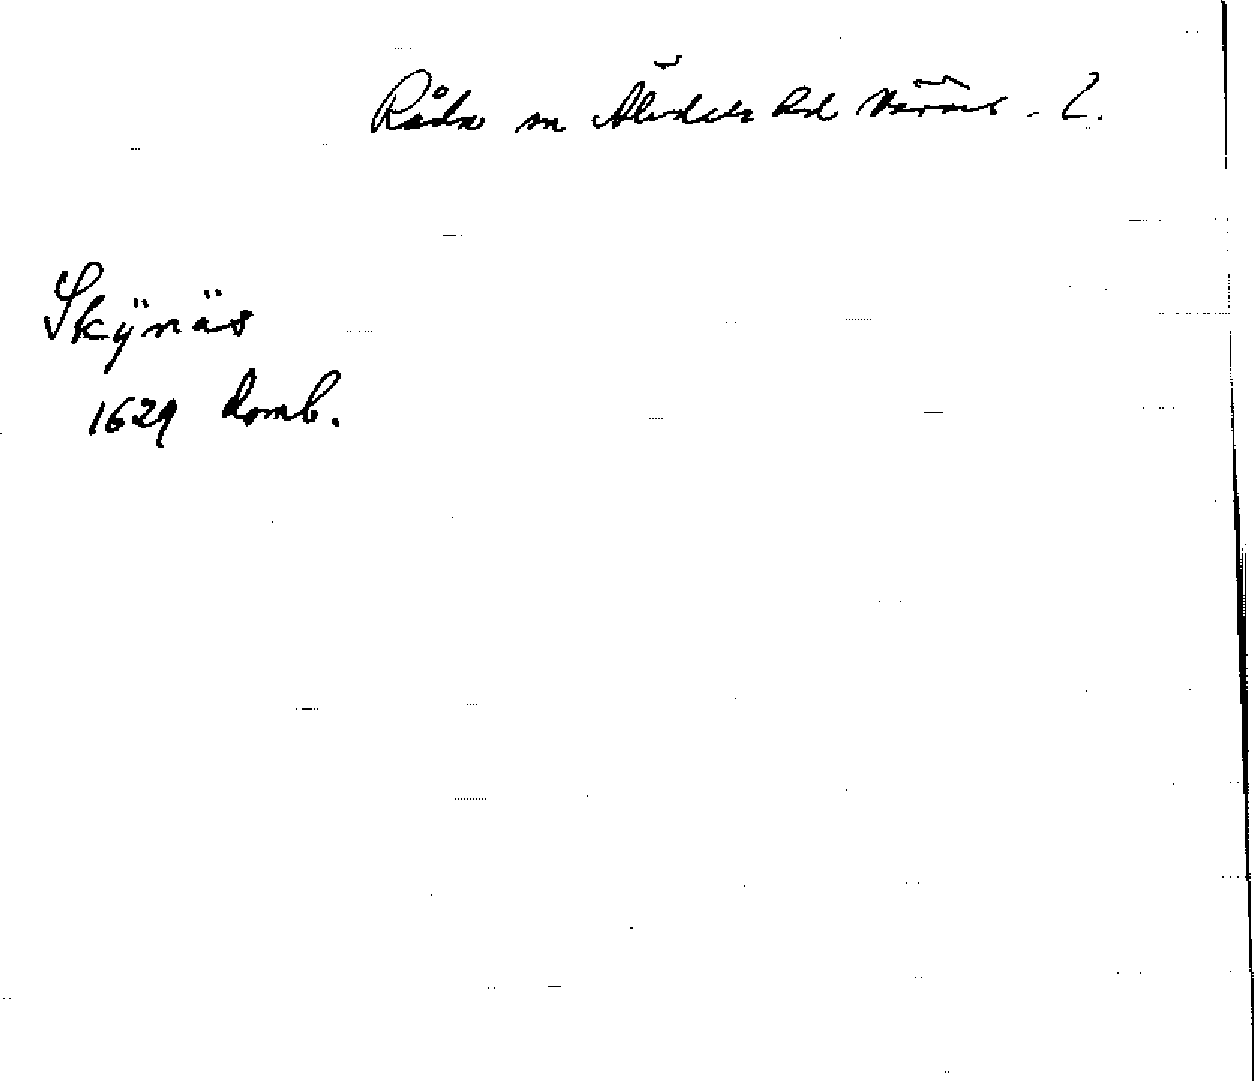 Råda sn Älvdals hd Värml. L.
Skÿnäs
1629 Domb.